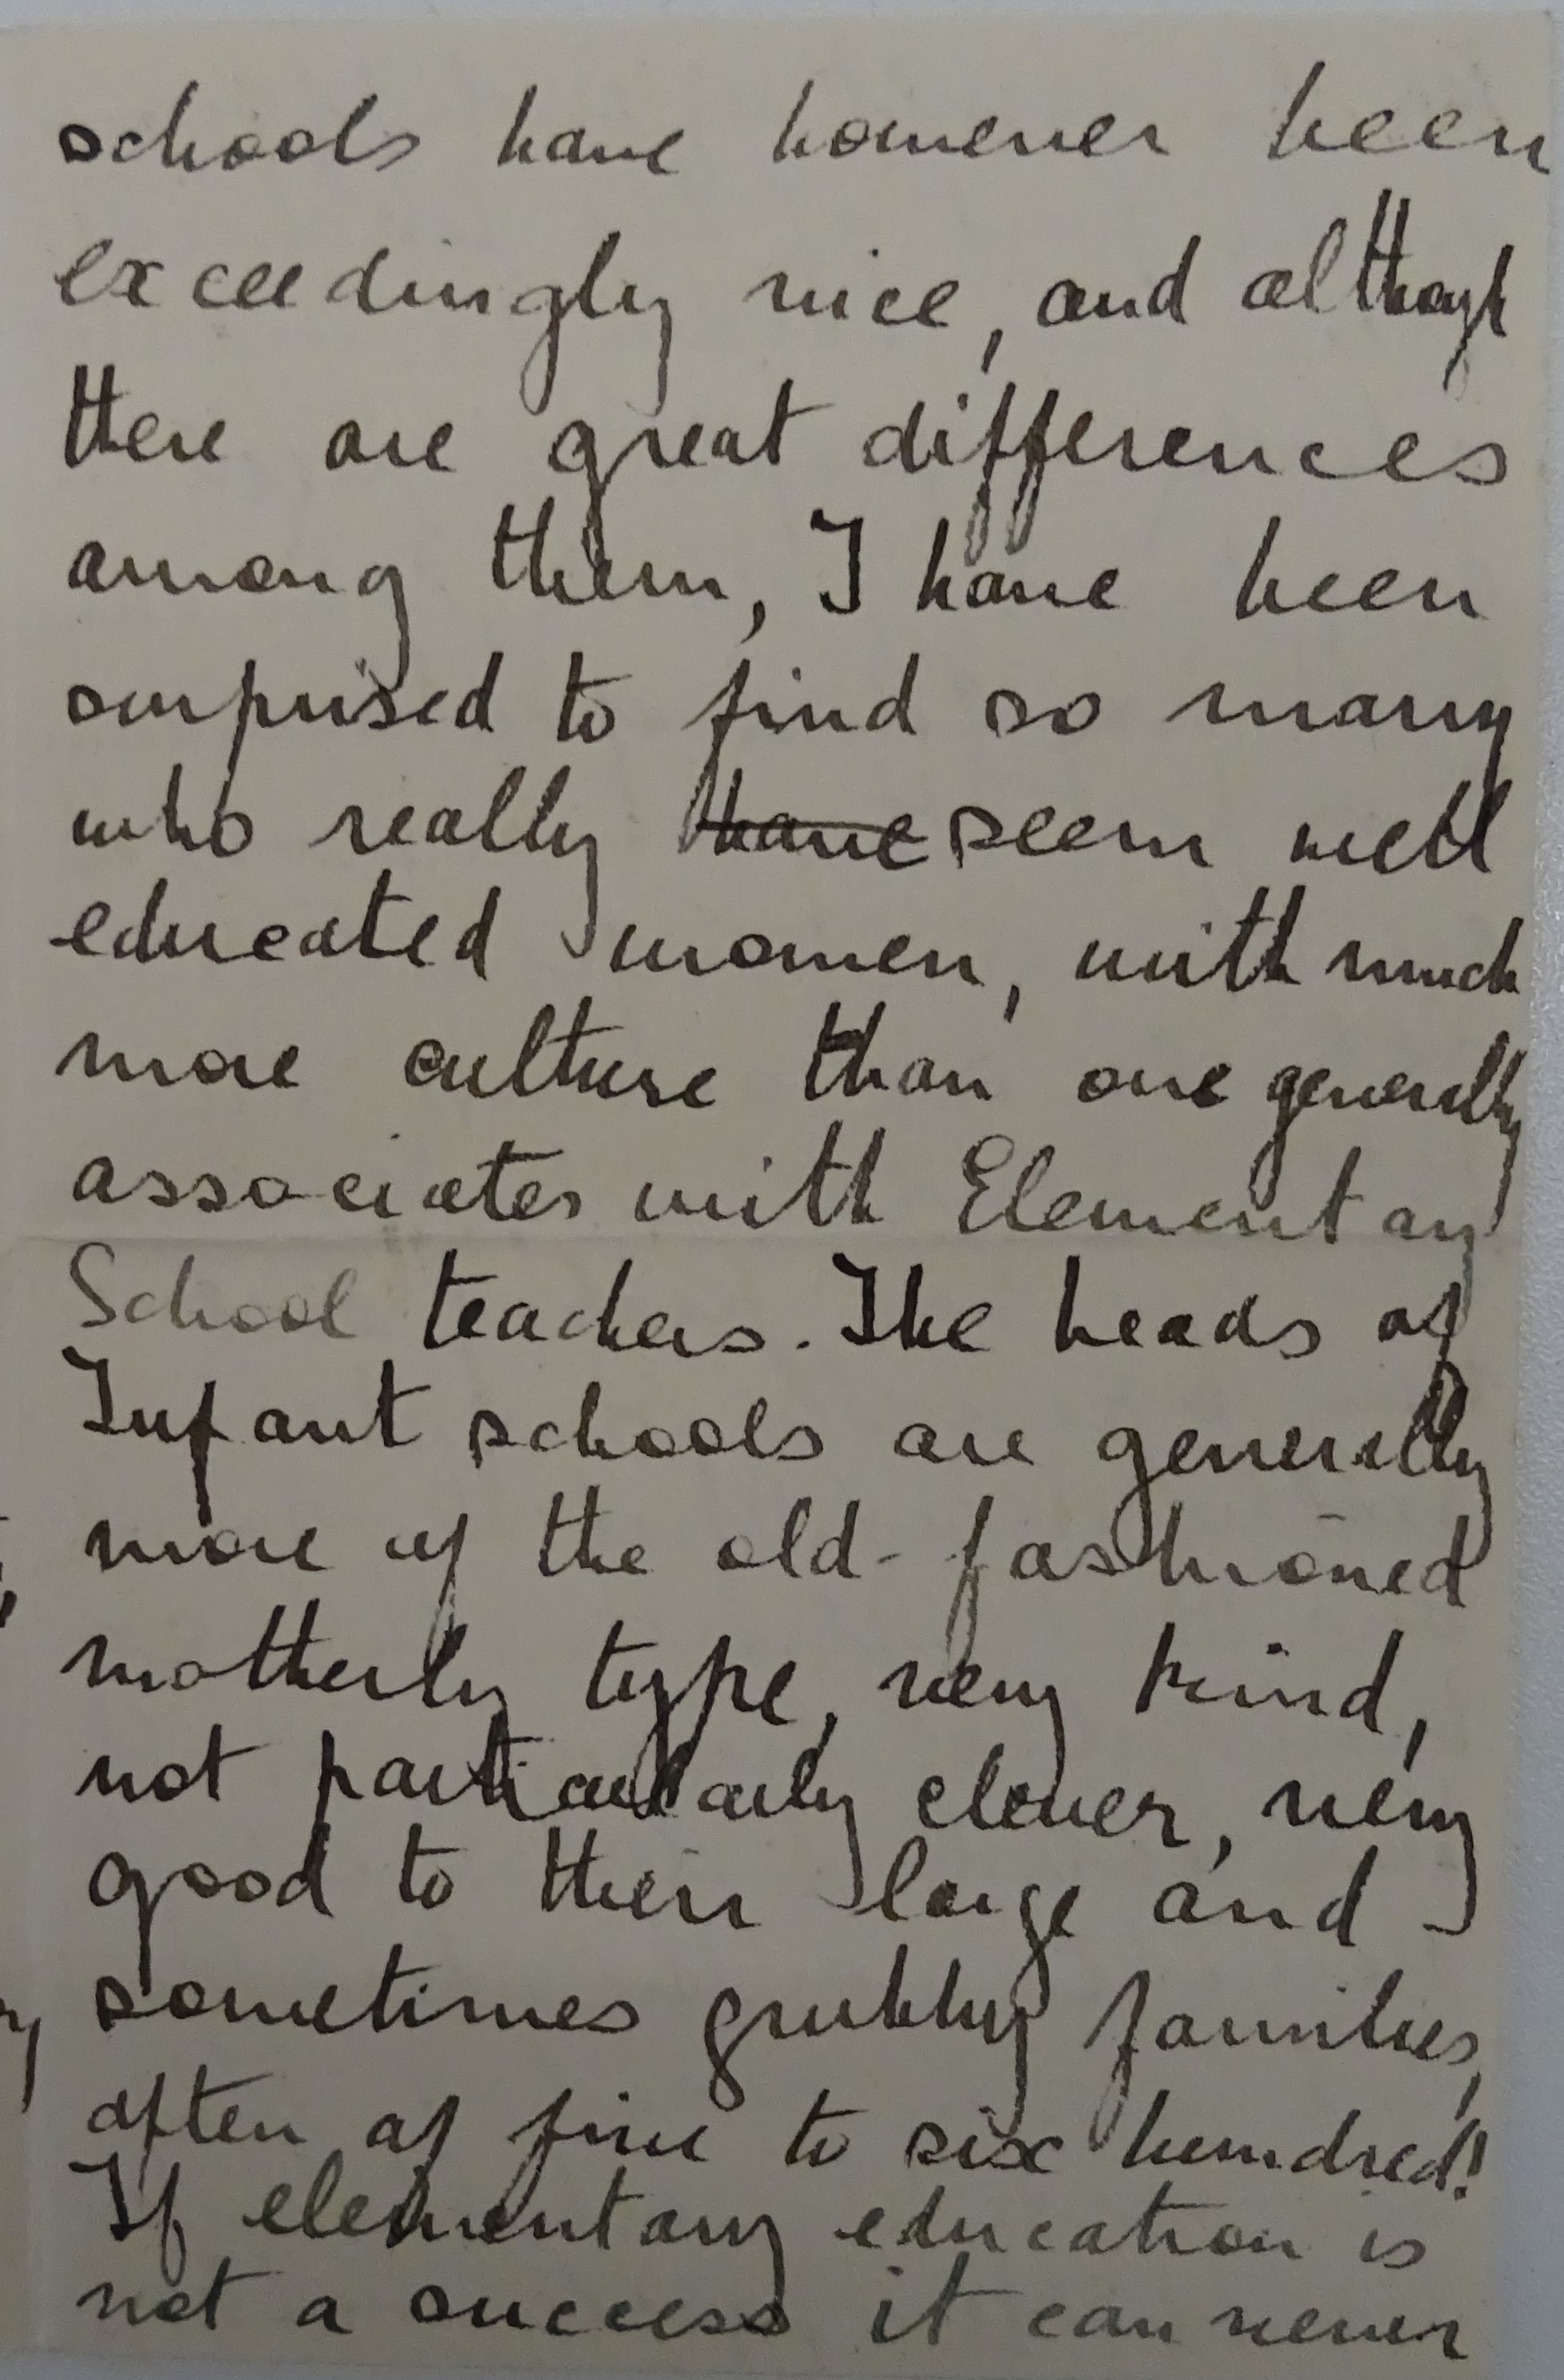 schools have however been
exceedingly nice, and although
there are great differences
among them, I have been
surprised to find so many
who really have seem well
educated women, with much
more culture than one generally
associates with Elementary
School teachers. The heads of
Infant schools are generally
more of the old-fashioned
motherly type, very kind,
not particularly clever, very
good to their large and
sometimes grubby families,
often of five to six hundred!
If elementary education is
not a success it can never